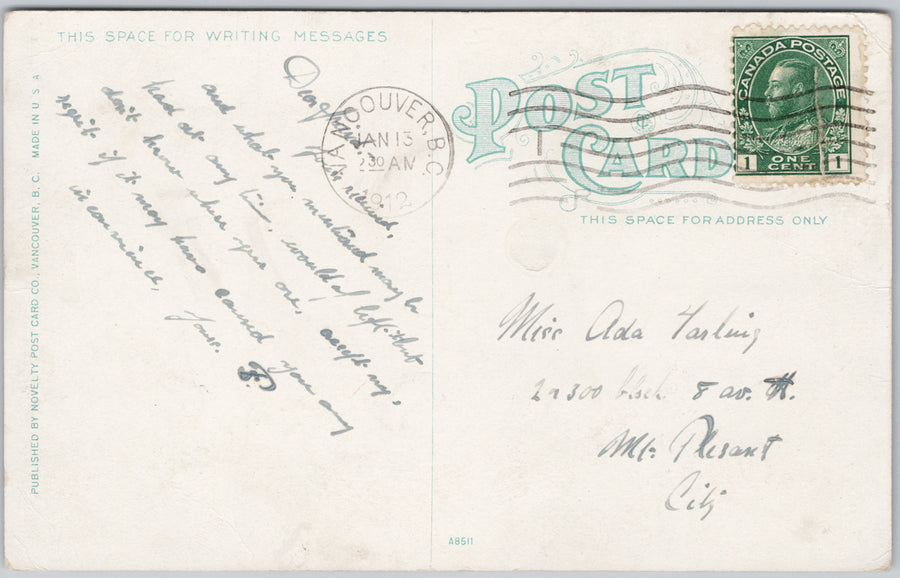 THIS SPACE FOR WRITING MESSAGES
PUBLISHED BY NOVELTY POST CARD CO., VANCOUVER, B. C. MADE IN U S A
and what you mentioned may be
had at any time, would of left. but
don't know where you are, accept my
regrits if it may have caused you any
inconvinience,
Yours.
B.
VANCOUVER, B.C.
JAN 13
2 30 AM
1912
POST
CARD
CANADA POSTAGE
1 ONE CENT 1
THIS SPACE FOR ADDRESS ONLY
Miss Ada Tarling
8 av.
Mt. Plesant
City
A8511